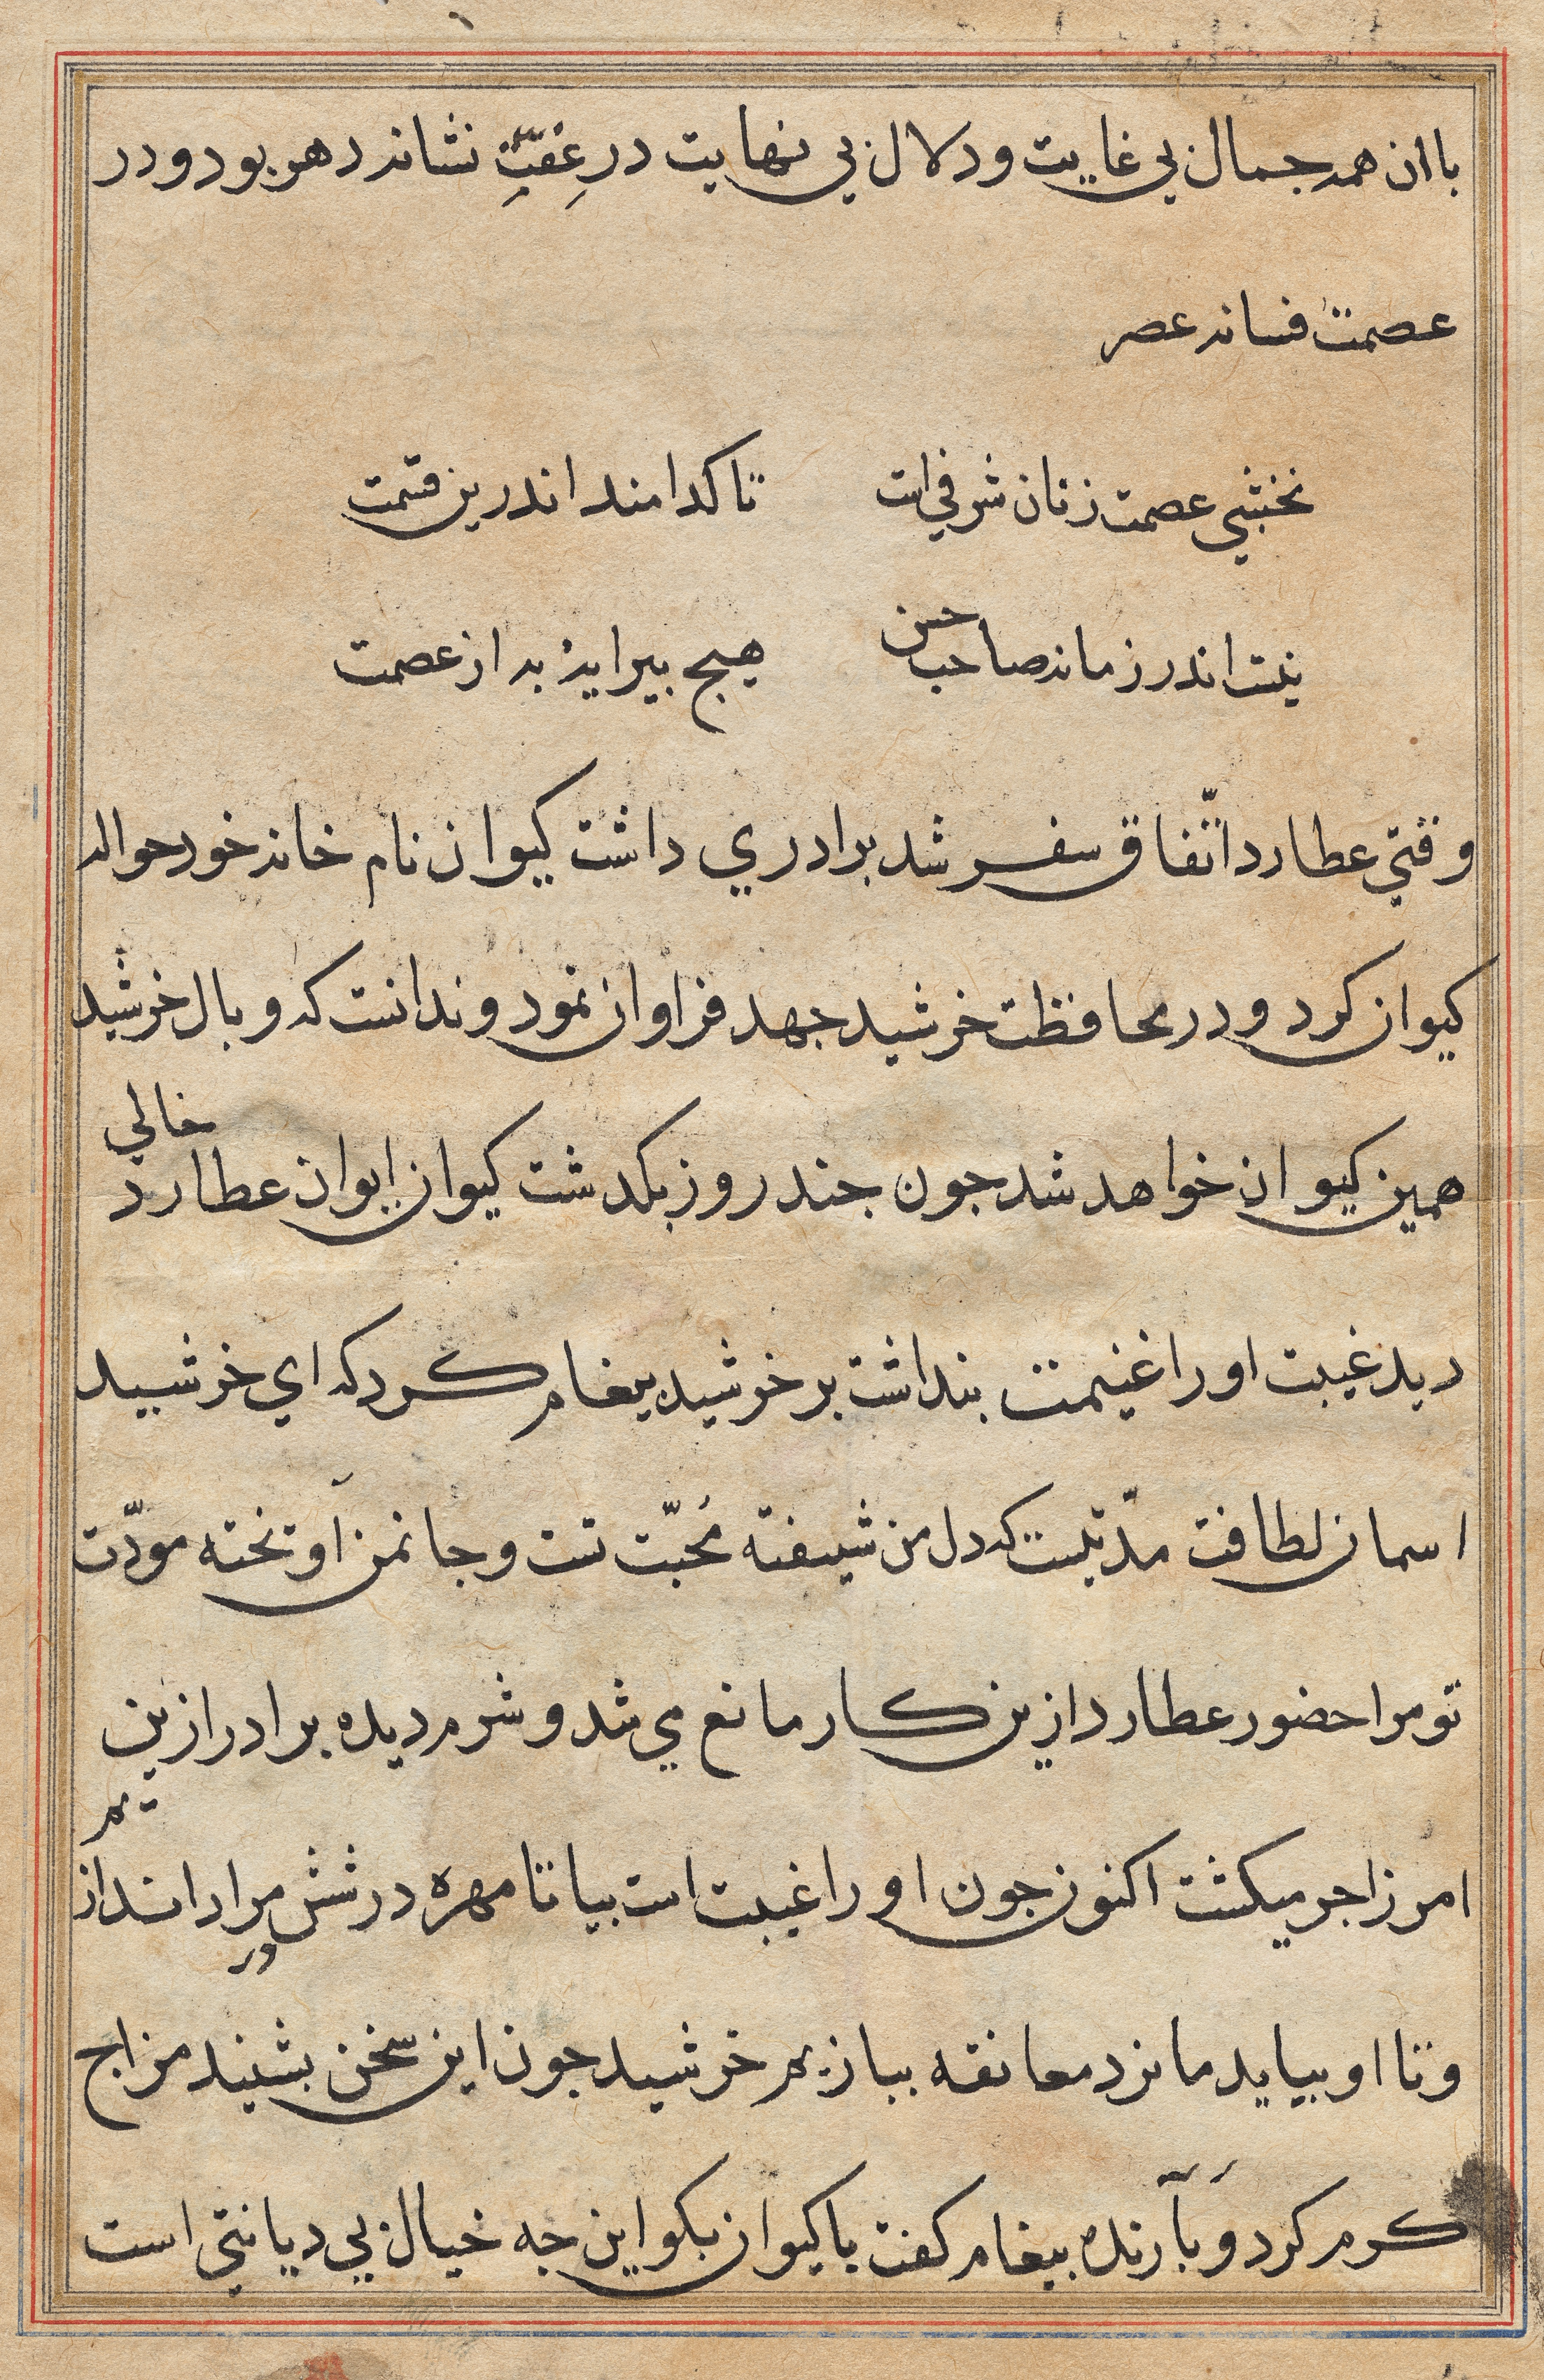 باان همه جمال بي غايت ودلال بي نهايت در عِفّتِ نشانه دهر بود و در
عصمت فسانه عصر
نخشبي عصمت زنان شرفي است تا كدامند اندرين قسمت
نيست اندر زمانه صاحب حسن هيج بيرايه به از عصمت
وقتي عطارد اتّفاق سفر شد برادري داشت كيوان نام خانه خود حواله
كيوان كرد و در محافظت خرشيد جهد فراوان نمود و ندانست كه وبال خرشيد
همين كيوان خواهد شد جون جند روز بكدشت كيوان ايوان عطارد خالي
ديد غيبت او را غنيمت بنداشت بر خرشيد بيغام كرد كه اي خرشيد
اسمان لطافت مدّتيست كه دل من شيفته مُحبّت تست و جانمن اوتخته مودّت
تو مرا حضور عطارد ازين كار مانع مي شد و شرم ديده برادر ازين
امر زاجر ميكشت اكنون جون او را غيبت است بيا تا مهره در ششدر مراد اندازيم
و تا او بيايد ما نرد معانقه ببازيم خرشيد جون اين سخن بشنيد مزاج
كرم كرد و بآرنده بيغام كفت با كيوان بكو اين جه خيال بي ديانتي است